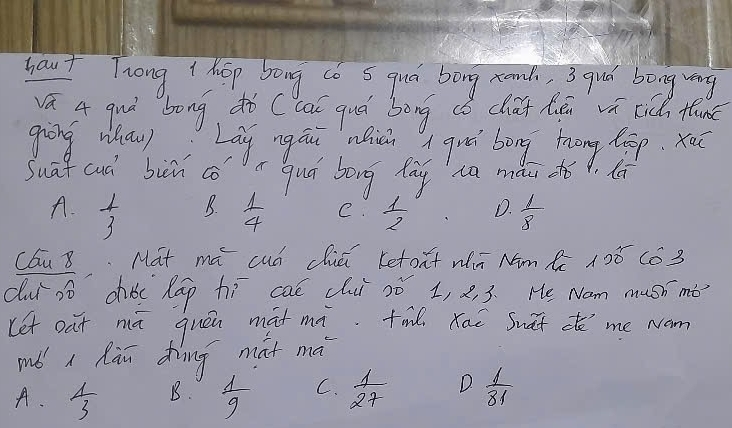 Câu 7 Trong 1 hộp bóng có 5 quả bóng xanh, 3 quả bóng vàng
và 4 quả bóng đỏ (các quả bóng có chất liệu và kích thước
giống nhau). Lấy ngẫu nhiên 1 quả bóng trong hộp. Xác
suất của biến cố "quả bóng lấy ra màu đỏ" là
A. 1/3 B. 1/4 C. 1/2. D. 1/8
Câu 8. Mật mã của chiếc két sắt nhà Nam là 1 số có 3
chữ số được lập từ các chữ số 1, 2, 3. Mẹ Nam muốn mở
két sắt mà quên mật mã. tính xác suất để mẹ Nam
mở 1 lần đúng mật mã
A. 1/3 B. 1/9 C. 1/27 D 1/81